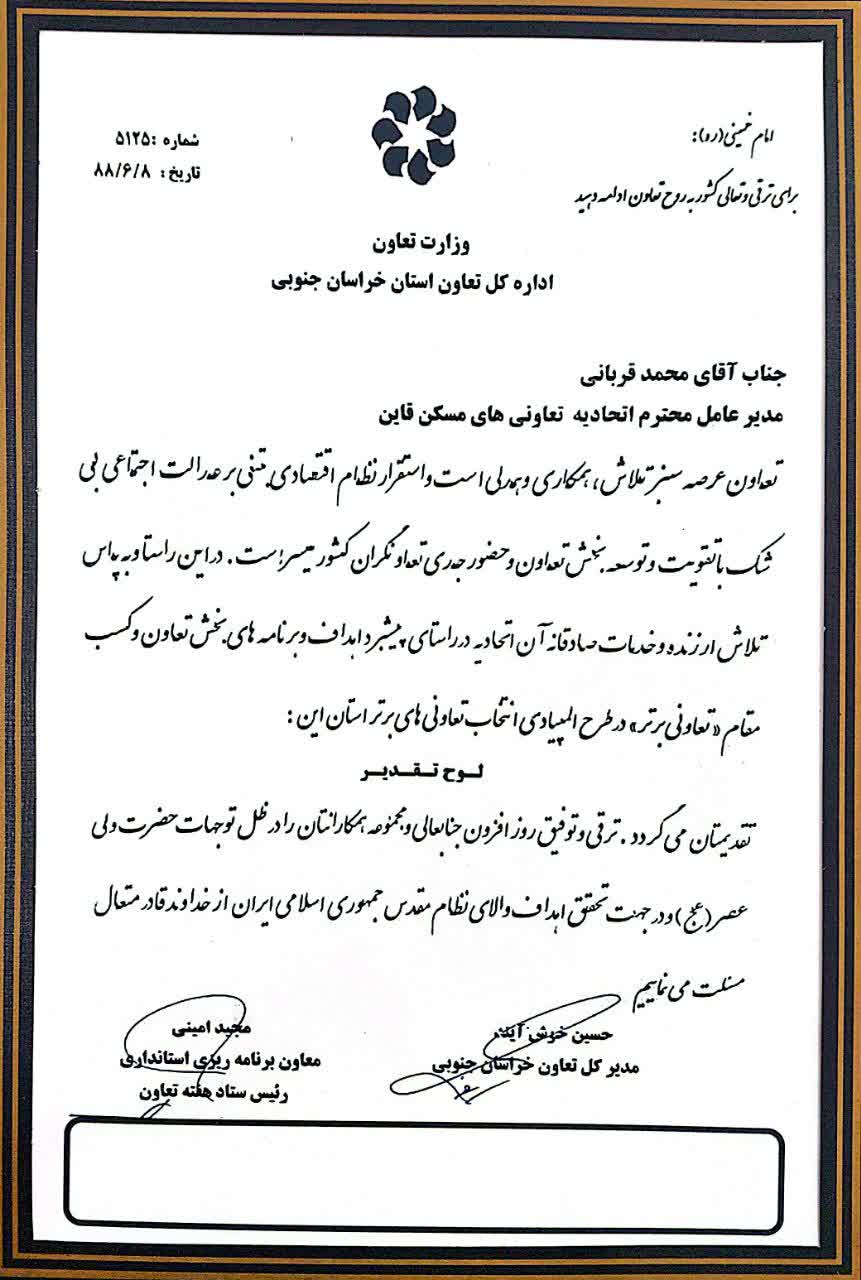 امام خمینی(ره):
برای ترقی و تعالی کشور به روح تعاون ادامه دهید
شماره :۵۱۲۵
تاریخ : ۸۸/۶/۸
وزارت تعاون
اداره کل تعاون استان خراسان جنوبی
جناب آقای محمد قربانی
مدیر عامل محترم اتحادیه تعاونی های مسکن قاین
تعاون عرصه سبز تلاش ، همکاری و همدلی است و استقرار نظام اقتصادی مبتنی بر عدالت اجتماعی بی
شک با تقویت و توسعه بخش تعاون و حضور جدی تعاونگران کشور میسر است . در این راستا و به پاس
تلاش ارزنده و خدمات صادقانه آن اتحادیه در راستای پیشبرد اهداف و برنامه های بخش تعاون و کسب
مقام «تعاونی برتر» در طرح المپیادی انتخاب تعاونی های برتر استان این :
لوح تقدیر
تقدیمتان می گردد . ترقی و توفیق روز افزون جنابعالی و مجموعه همکارانتان را در ظل توجهات حضرت ولی
عصر (عج) و در جهت تحقق اهداف والای نظام مقدس جمهوری اسلامی ایران از خداوند قادر متعال
مسئلت می نماییم
حسین خوش آینه
مدیر کل تعاون خراسان جنوبی
مجید امینی
معاون برنامه ریزی استانداری
رئیس ستاد هفته تعاون